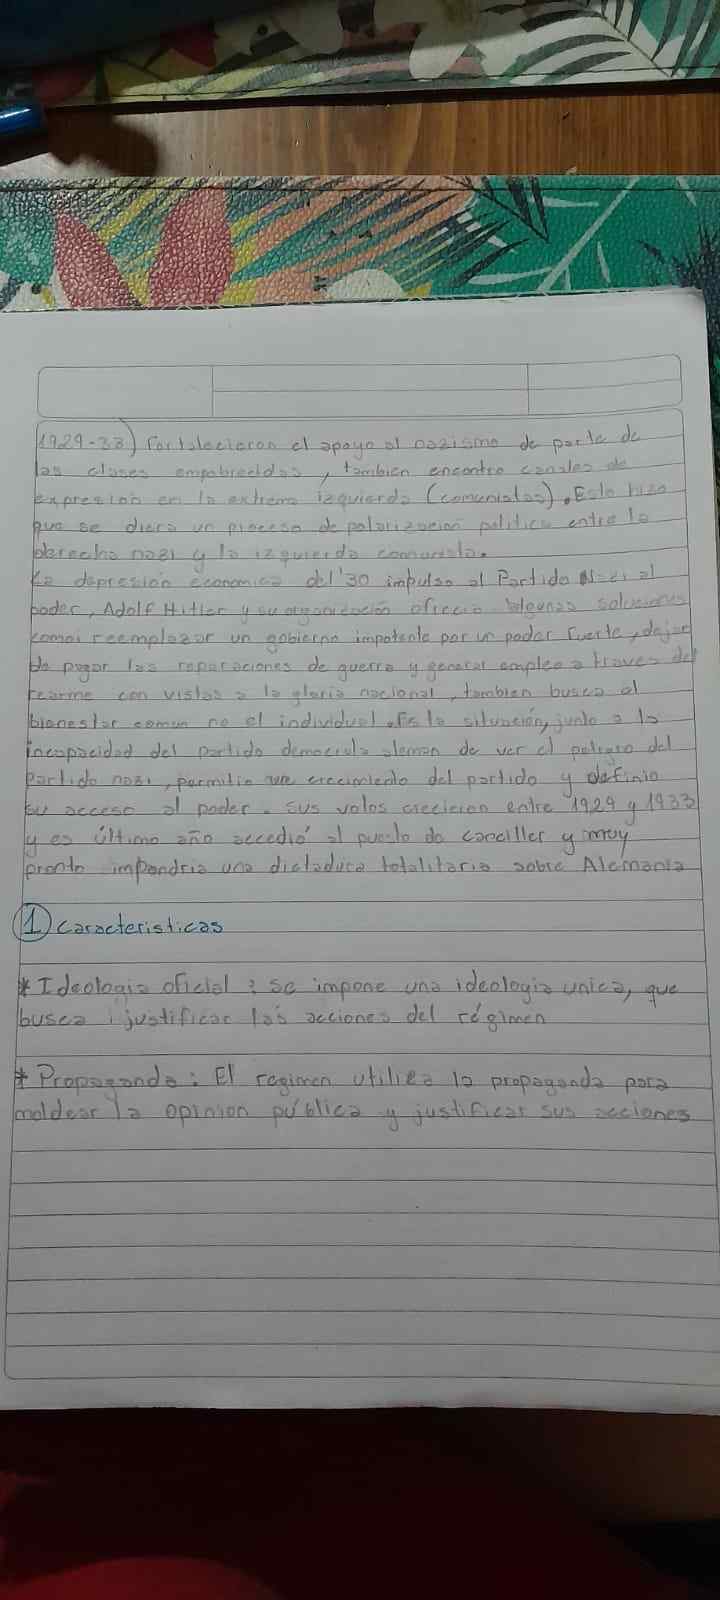 1929-33) Fortalecieron el apoyo al nazismo de parte de
las clases empobrecidas, tambien encontro canales de
expresion en la extrema izquierda (comunistas). Esto hizo
que se diera un proceso de polarización politica entre la
derecha nazi y la izquierda comunista.
La depresion economica del '30 impulso al Partido Nazi al
poder, Adolf Hitler y su organización ofrecia algunas soluciones
como: reemplazar un gobierno impotente por un poder fuerte, dejar
de pagar las reparaciones de guerra y generar empleo a traves del
rearme con vistas a la gloria nacional, tambien busca el
bienestar comun no el individual. Esta situación, junto a la
incapacidad del partido democrata aleman de ver el peligro del
partido nazi, permitio un crecimiento del partido y definio
su acceso al poder. Sus votos crecieron entre 1929 y 1933
y es último año accedió al puesto de canciller y muy
pronto impondria una dictadura totalitaria sobre Alemania
1 caracteristicas
* Ideologia oficial: se impone una ideologia unica, que
busca justificar las acciones del régimen
* Propaganda: El regimen utiliza la propaganda para
moldear la opinion pública y justificar sus acciones